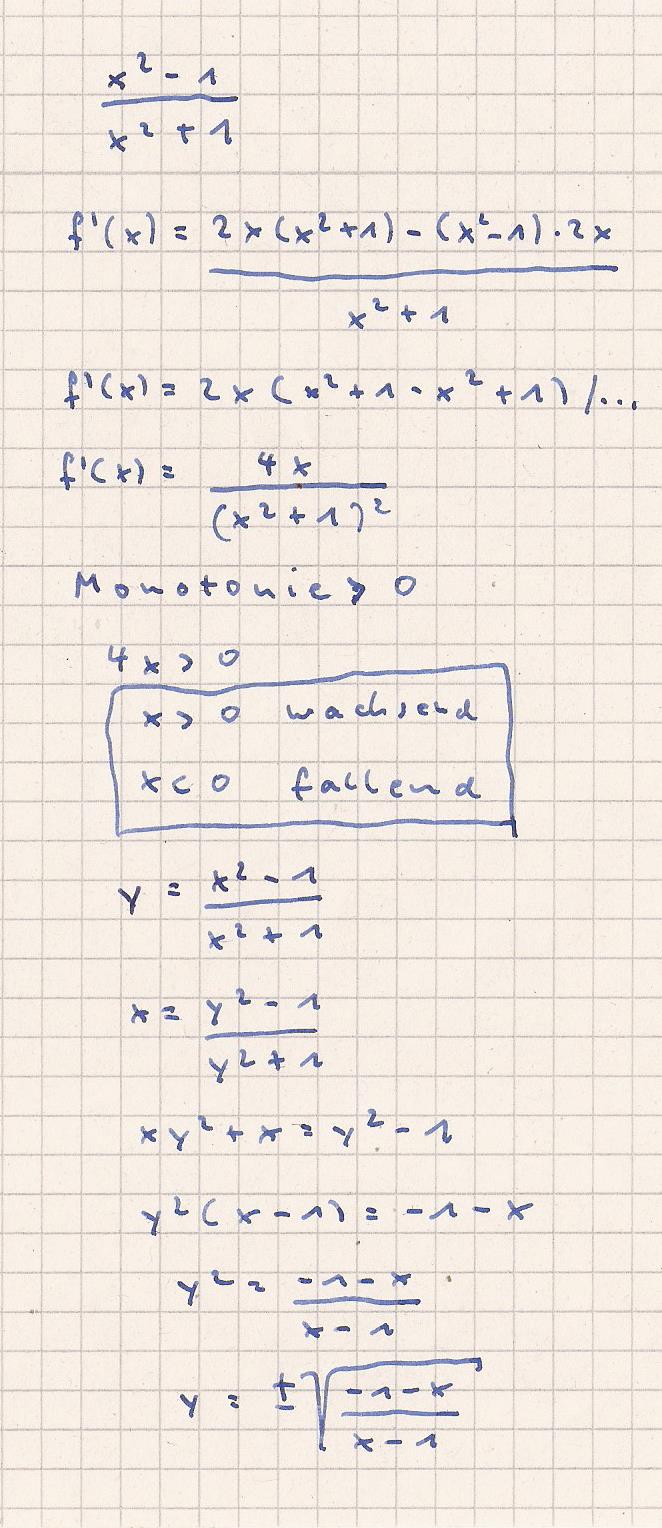 x² - 1
x² + 1
f'(x) = 2x(x²+1) - (x²-1)·2x
x² + 1
f'(x) = 2x(x²+1-x²+1)/...
f'(x) = 4x
(x²+1)²
Monotonie > 0
4x > 0
x > 0 wachsend
x < 0 fallend
y = x² - 1
x² + 1
x = y² - 1
y² + 1
xy² + x = y² - 1
y²(x-1) = -1-x
y² = -1-x
x-1
y = ±√ -1-x
x-1